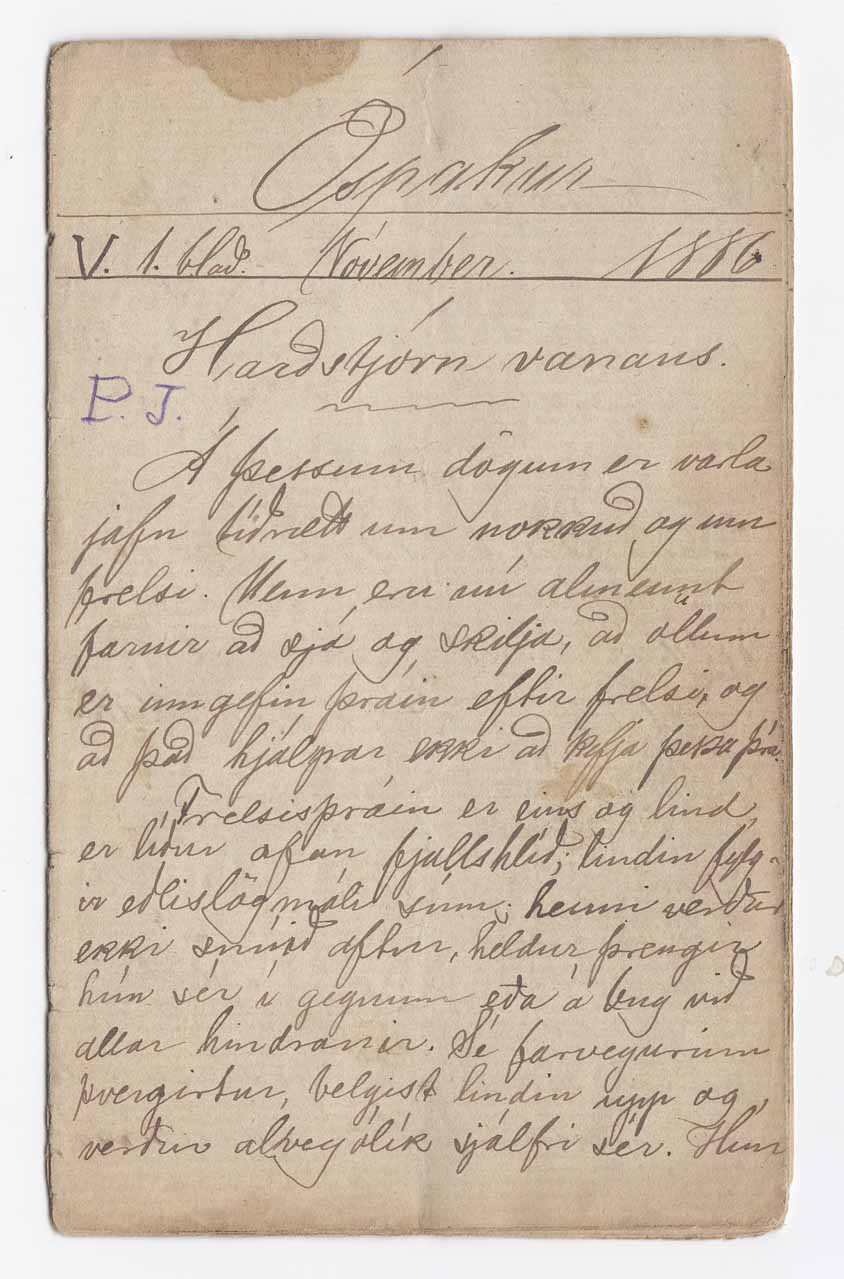 Óspakur
V. 1. blað. Nóvember. 1886
Harðstjórn vanans.
P. J.
Á þessum dögum er varla
jafn tíðrætt um nokkuð og um
frelsi. Menn eru nú almennt
farnir að sjá og skilja, að öllum
er inngefin þráin eftir frelsi, og
að það hjálpar ekki að kefja þessa þrá.
Frelsisþráin er eins og lind,
er líður ofan fjallshlíð; lindin fylg-
ir eðlislögmáli sínu; henni verður
ekki snúið aftur, heldur þrengir
hún sér í gegnum eða á bug við
allar hindranir. Sé farvegurinn
þvergirtur, belgist lindin upp og
verður alveg ólík sjálfri sér. Hún